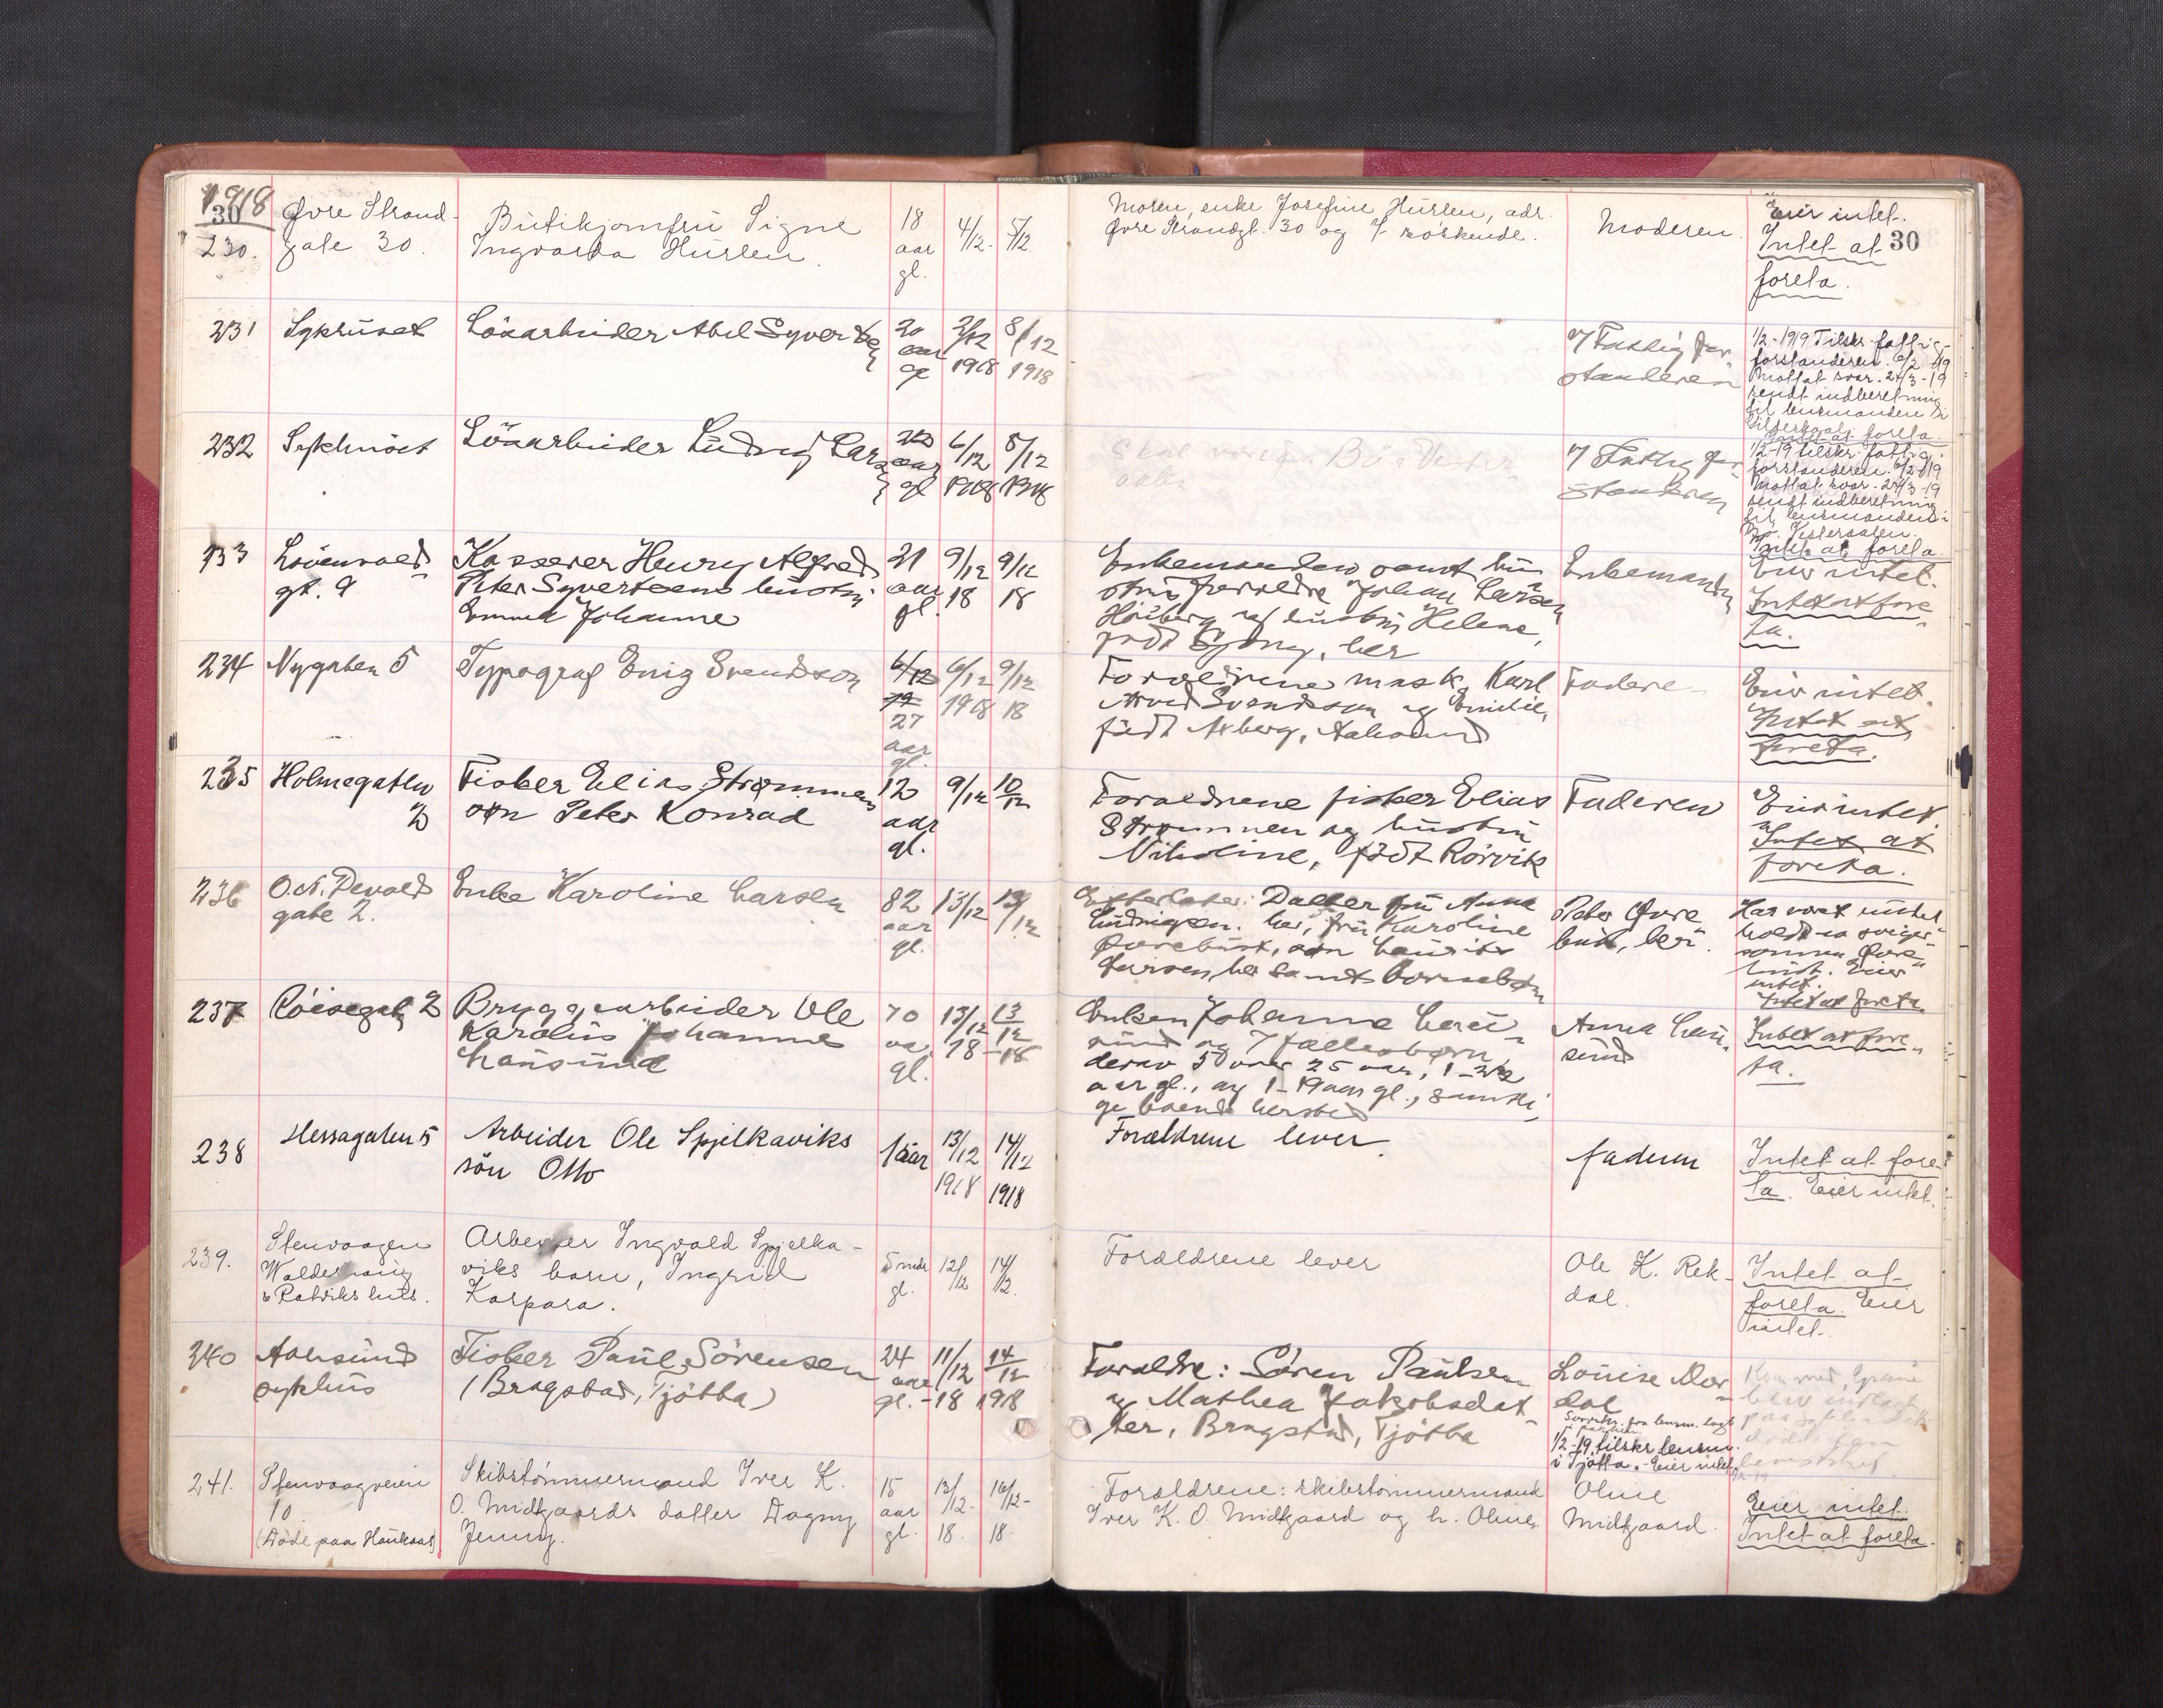 1918
30
230.
Øvre Strand-
gate 30.
Butikjomfru Signe
Ingvarda Hurlen.
18
aar
gl.
4/12-
5/12
Moren, enke Josefine Hurlen, adr.
Øvre Strandgt. 30 og 7 søskende.
Moderen.
Eier intet.
Intet at
foreta.
30
231
Sykehuset
Lösarbeider Abel Syvertsen
20
aar
gl
2/12
1918
8/12
1918
Fattigfor-
standeren
1/2-1919 Tilskr. fattig-
forstanderen. 6/2 - 19
Mottat svar. 24/3-19
sendt indberetning
til lensmanden i
Intet at foreta.
232
Sykehuset
Lösarbeider Ludvig Larsen
aar
gl
6/12
1918
8/12
1918
Skal være fra Bö i Vester-
aalen
Fattigfor-
standeren
1/2-19 tilskr. fattig-
forstanderen. 6/2-1919
Mottat svar. 24/3-19
sendt indberetning
til lensmanden i
Bö. Vesteraalen.
Intet at foreta.
233
Lövenvold-
gt. 9
Kasserer Henry Alfred
Peter Syvertsens hustru
Emma Johanne
21
aar
gl.
9/12
18
9/12
18
Enkemanden samt hu-
strus foreldre Johan Larsen
Höiberg og hustru Helene,
født Gjöny, her
Enkemanden
Eier intet.
Intet at fore-
ta.
234
Nygaten 5
Typograf Enig Svendson
6/12
27
aar
gl.
6/12
1918
9/12
18
Foreldrene mask. Karl
Svendson og Emilie,
født Axberg, Aalesund
Faderen
Eier intet.
Intet at
foreta.
235
Holmegaten
2
Fisker Elias Strømmens
søn Peter Konrad
12
aar
gl.
9/12
10/12
Foraeldrene fisker Elias
Strømmen og hustru
Nikoline, født Rörvik
Faderen
Eier intet.
Intet at
foreta.
236
O.A. Devolds
gate 2.
Enke Karoline Larsen
82
aar
gl.
13/12
13/12
Efterlater: Datter fru Anna
Ludvigsen. her, fru Karoline
Øvrebust, søn Laurits
Larsen, her samt barnebørn
Peter Øvre-
bust, her.
Har vært under-
holdt av sviger-
sønnen Øvre-
bust. Eier
intet.
Intet at foreta
237
Röisegaten 2
Bryggearbeider Ole
Karolius Johannes
Lausund
70
aar
gl.
13/12
18-
13/12
18
Enken Johanne Lau-
sund og 7 fællesbørn,
derav 5 over 25 aar, 1-22
aar gl., og 1-19 aar gl., samtli-
ge boende hersted
Anna Lau-
sund
Intet at fore-
ta.
238
Hessagaten 5
Arbeider Ole Spjelkaviks
sön Otto
1 aar
13/12
1918
14/12
1918
Forældrene lever.
faderen
Intet at fore-
ta. Eier intet.
239.
Stenvaagen
Arbeider Ingvald Spjelka-
viks barn, Ingrid
Kaspara.
5 mdr
gl.
12/12
14/12.
Forældrene lever
Ole K. Rek-
dal.
Intet at
foreta. Eier
intet.
240
Aalesund
sykehus
Fisker Paul Sörensen
(Bragstad, Tjötta)
24
aar
gl.
11/12
-18
14/12
1918
Foraeldre: Sören Paulsen
og Mathea Jakobsdat-
ter, Bragstad, Tjötta
Louise Mor-
dal
1/2-19 tilskr lensm.
i Tjötta. Eier intet.
241.
Stenvaagveien
10
(Døde paa Haukaas)
Skibstömmermand Iver K.
O. Midtgaards datter Dagny
Jenny.
15
aar
gl.
13/12-
18.
16/12-
18
Forældrene: skibstömmermand
Iver K. O. Midtgaard og h. Oline
Oline
Midtgaard.
Eier intet.
Intet at foreta.